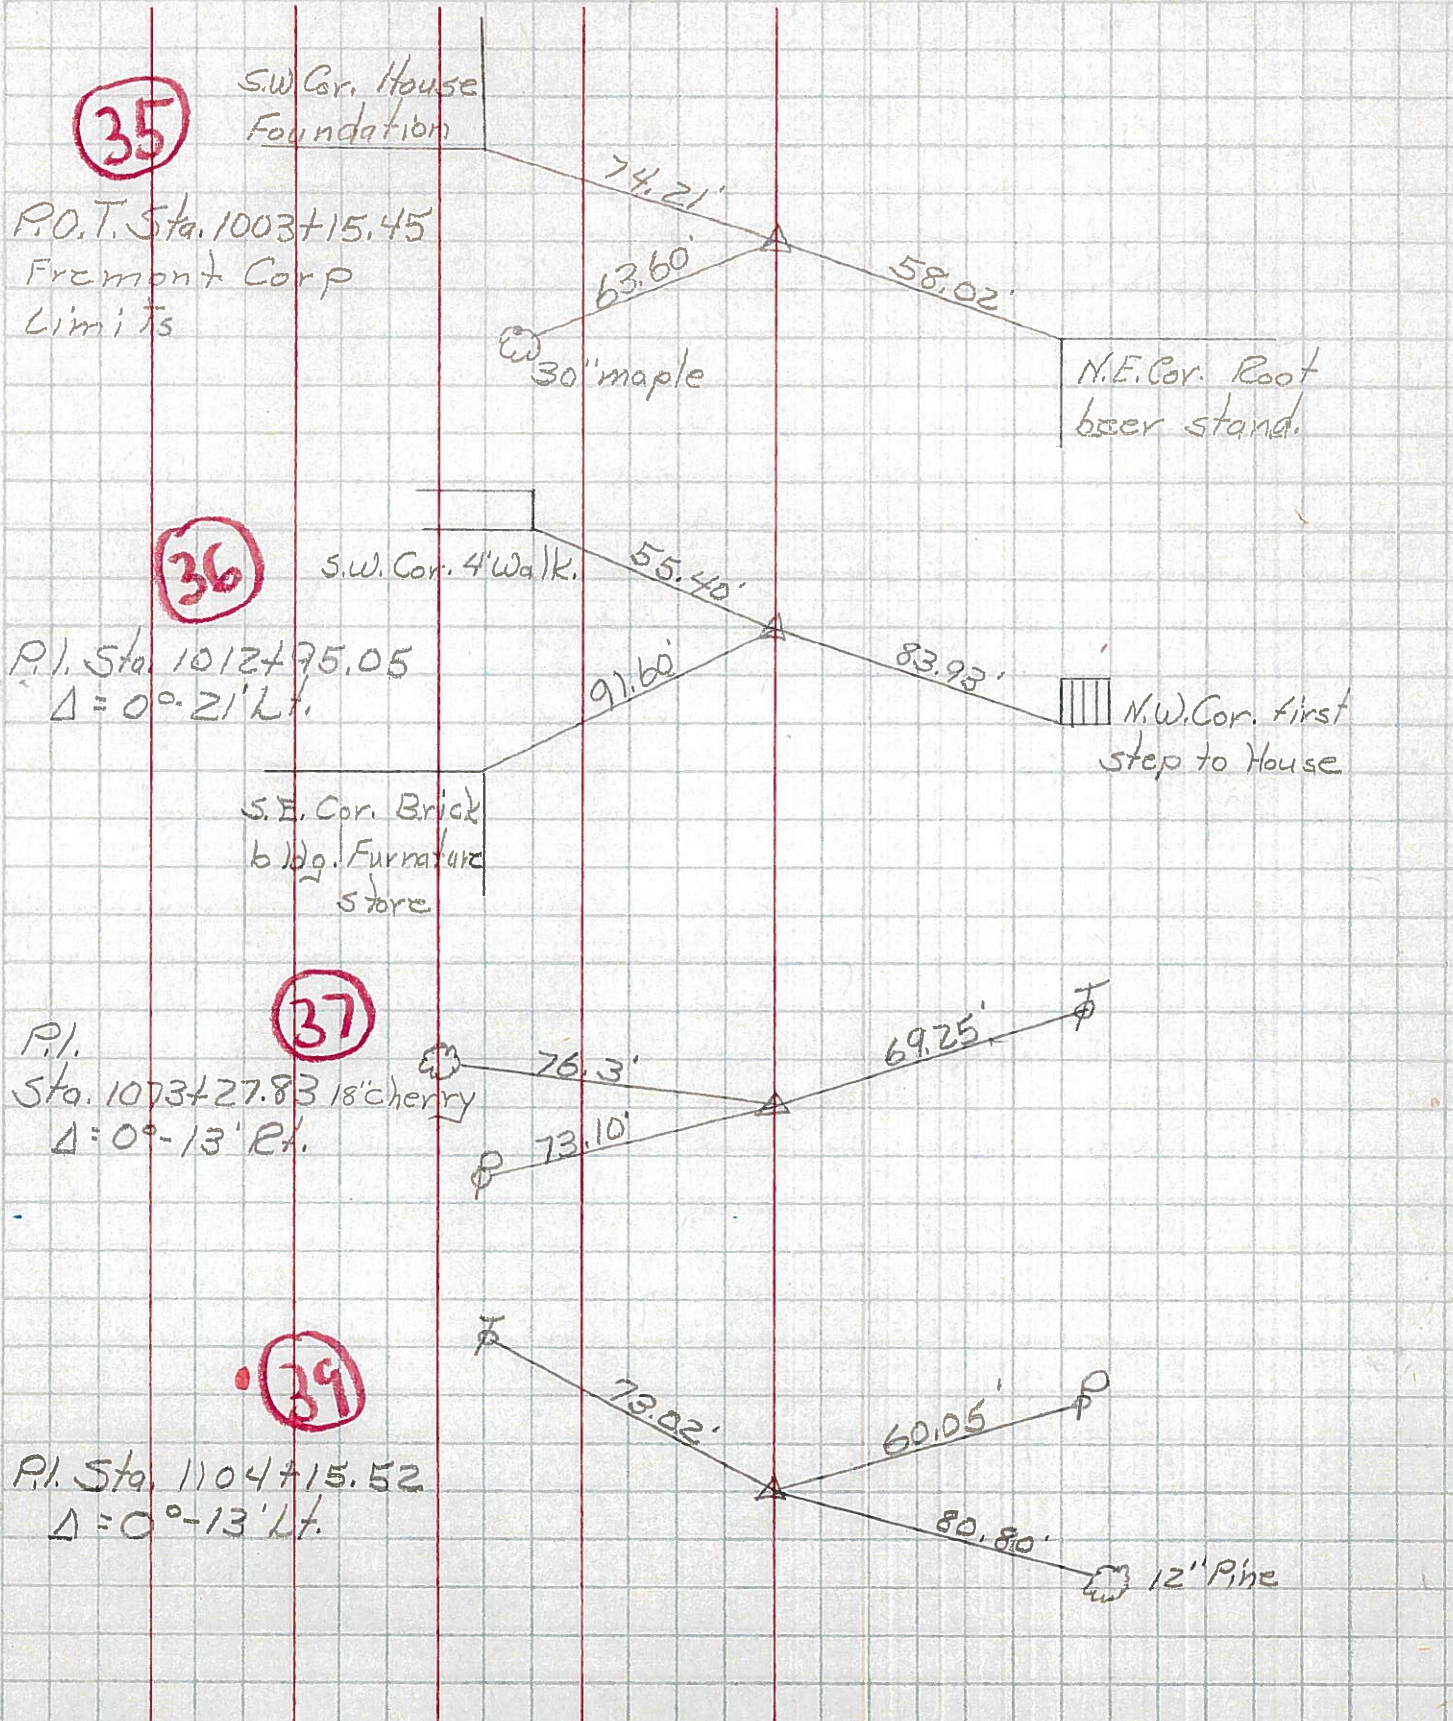 35
S.W. Cor. House
Foundation
74.21'
P.O.T. Sta. 1003+15.45
Fremont Corp
Limits
63.60'
58.02'
30" maple
N.E. Cor. Root
beer stand.
36
S.W. Cor. 4' Walk.
55.40'
P.I. Sta. 1012+75.05
Δ = 0°-21' Lt.
91.60'
83.93'
N.W. Cor. first
step to House
S.E. Cor. Brick
bldg. Furnature
store
37
P.I.
Sta. 1073+27.83
Δ = 0°-13' Rt.
18" cherry
76.3'
69.25'
73.10'
39
73.02'
60.05'
P.I. Sta. 1104+15.52
Δ = 0°-13' Lt.
80.80'
12" Pine